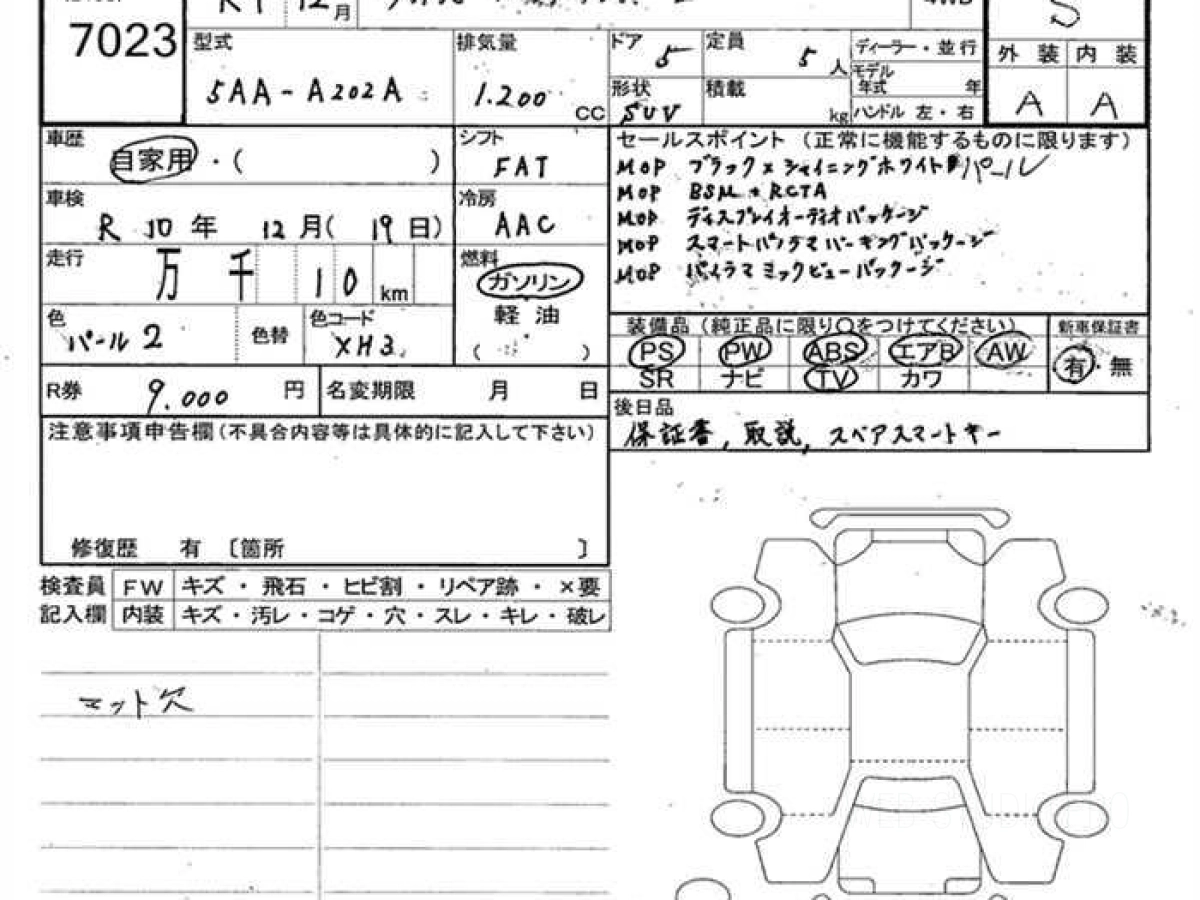 7023
月
S
型式
5AA-A202A
排気量
1.200
CC
ドア 5
形状
SUV
定員 5人
積載
kg
ディーラー・並行
モデル年式 年
ハンドル 左・右
外装 内装
A A
車歴
自家用・( )
シフト
FAT
車検
R 10年 12月(19日)
冷房
AAC
走行
万 千 10 km
燃料
ガソリン
軽油
( )
色
パール2
色替
色コード
XH3
R券 9.000 円
名変期限 月 日
セールスポイント(正常に機能するものに限ります)
MOP ブラック×シャイニングホワイトパール
MOP BSM+RCTA
MOP ディスプレイオーディオパッケージ
MOP スマートパノラマパーキングパッケージ
MOP パノラマミックビューパッケージ
装備品(純正品に限り○をつけてください)
PS PW ABS エアB AW
SR ナビ TV カワ
新車保証書
有・無
後日品
保証書, 取説, スペアスマートキー
注意事項申告欄(不具合内容等は具体的に記入して下さい)
修復歴 有 〔箇所 〕
検査員 FW キズ・飛石・ヒビ割・リペア跡・×要
記入欄 内装 キズ・汚レ・コゲ・穴・スレ・キレ・破レ
マット欠